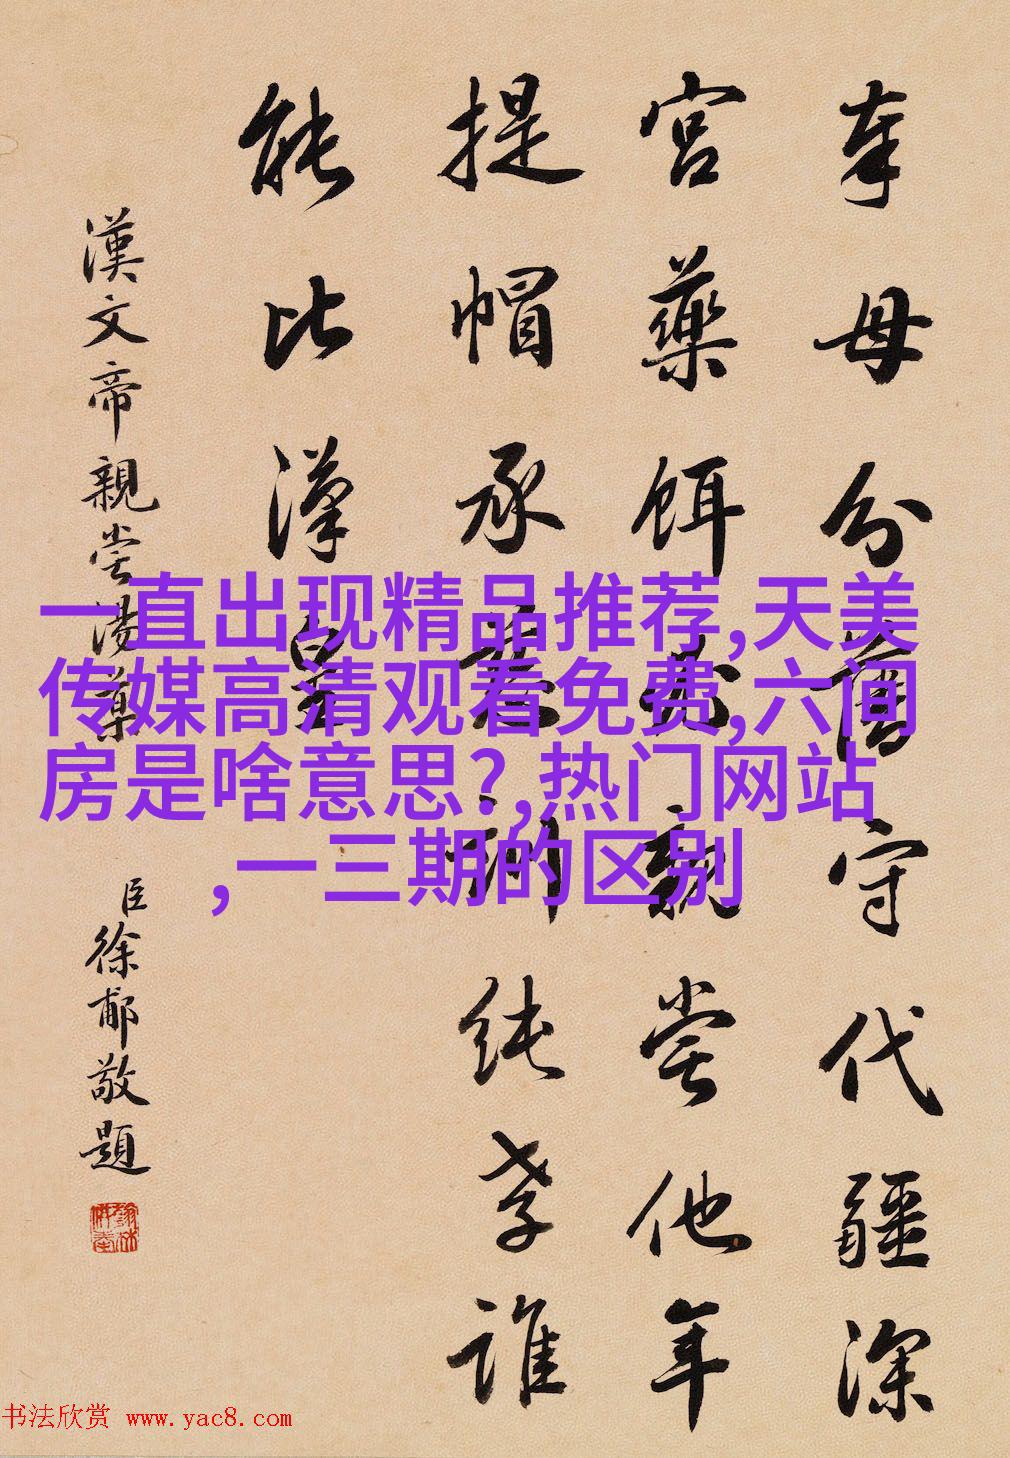 奉母分藩守代疆深
宮藥餌必親嘗他年
提帽承慈訓純孝誰
能比漢皇
漢文帝親嘗湯藥
臣徐郙敬題
一直出现精品推荐,天美
传媒高清观看免费,六间
房是啥意思?,热门网站
,一三期的区别
书法欣赏 www.yac8.com